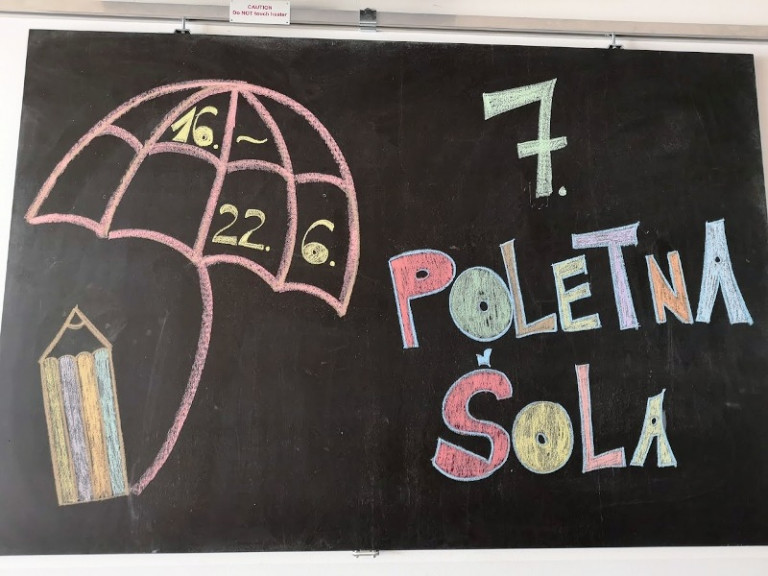 CAUTION
Do NOT touch heater
16. ~
22. 6.
7.
POLETNA
ŠOLA